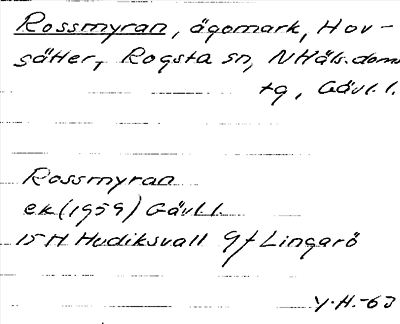 Rossmyran, ägomark, Hov-
sätter, Rogsta sn, NHäls. doms
tg, Gävl. l.
Rossmyran
ek (1959) Gävl.l.
15H Hudiksvall 9f Lingarö
Y.H.-63